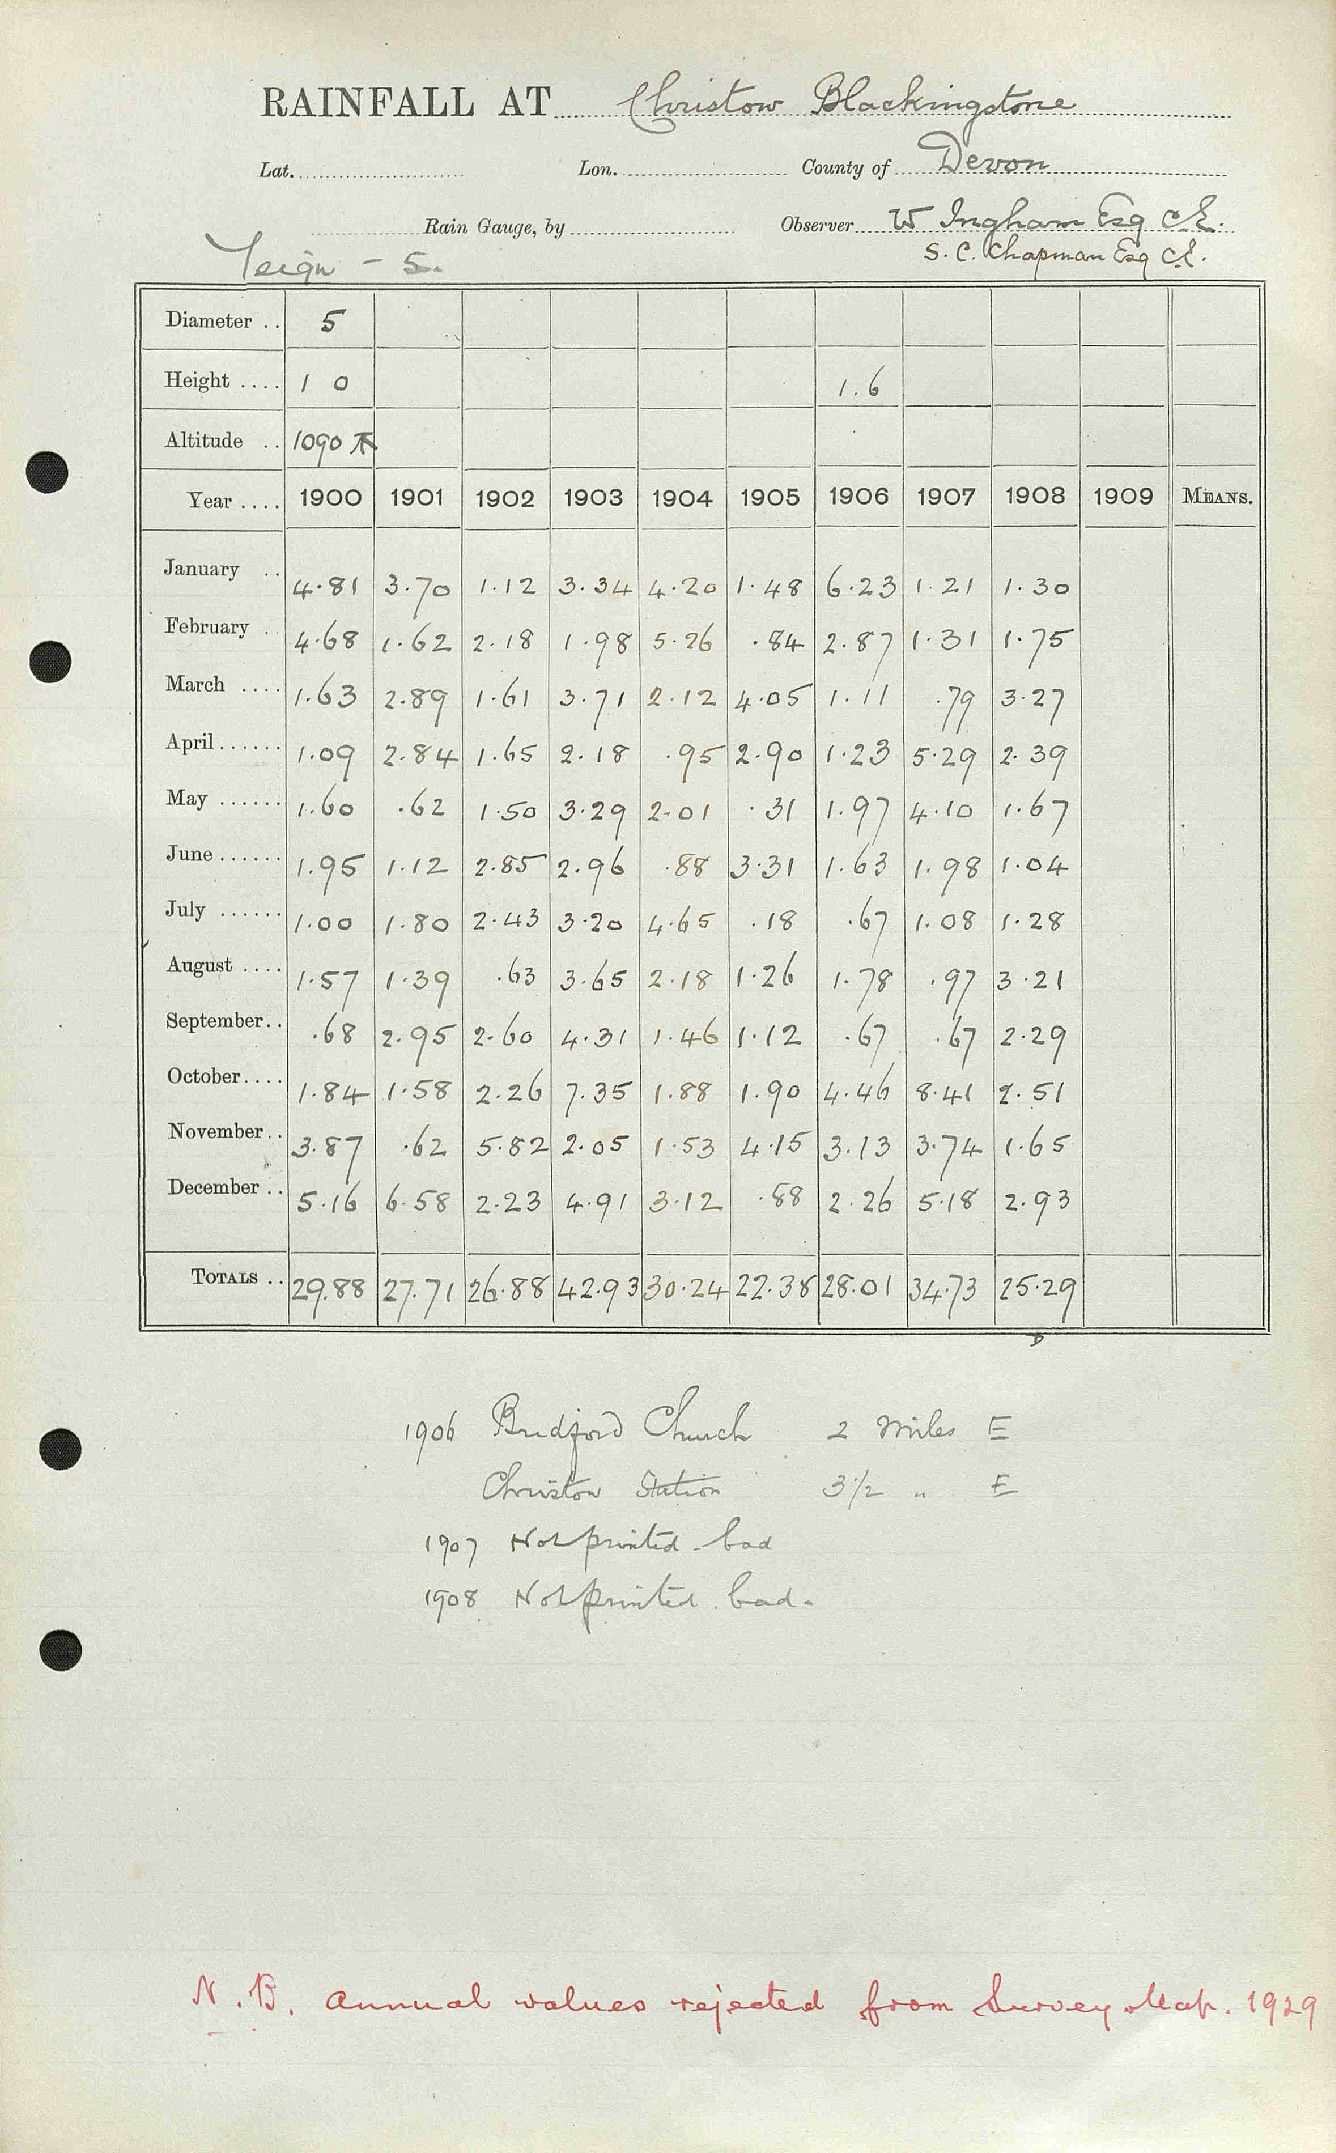 RAINFALL AT Christow Blackingstone
Lat. Lon. County of Devon
Rain Gauge, by Observer W Ingham Esq C.E.
Teign - 5. S. C. Chapman Esq C.E.
Diameter .. 5
Height .... 1 0 1.6
Altitude .. 1090
Year .... 1900 1901 1902 1903 1904 1905 1906 1907 1908 1909 MEANS.
January .. 4.81 3.70 1.12 3.34 4.20 1.48 6.23 1.21 1.30
February . 4.68 1.62 2.18 1.98 5.26 .84 2.87 1.31 1.75
March .... 1.63 2.89 1.61 3.71 2.12 4.05 1.11 .79 3.27
April...... 1.09 2.84 1.65 2.18 .95 2.90 1.23 5.29 2.39
May ...... 1.60 .62 1.50 3.29 2.01 .31 1.97 4.10 1.67
June...... 1.95 1.12 2.85 2.96 .88 3.31 1.63 1.98 1.04
July ...... 1.00 1.80 2.43 3.20 4.65 .18 .67 1.08 1.28
August .... 1.57 1.39 .63 3.65 2.18 1.26 1.78 .97 3.21
September.. .68 2.95 2.60 4.31 1.46 1.12 .67 .67 2.29
October.... 1.84 1.58 2.26 7.35 1.88 1.90 4.46 8.41 2.51
November.. 3.87 .62 5.82 2.05 1.53 4.15 3.13 3.74 1.65
December .. 5.16 6.58 2.23 4.91 3.12 .88 2.26 5.18 2.93
TOTALS .. 29.88 27.71 26.88 42.93 30.24 22.38 28.01 34.73 25.29
1906 Bridford Church 2 Miles E
Christow Station 3 1/2 " E
1907 Not printed. bad
1908 Not printed. bad.
N.B. Annual values rejected from Survey Map. 1929